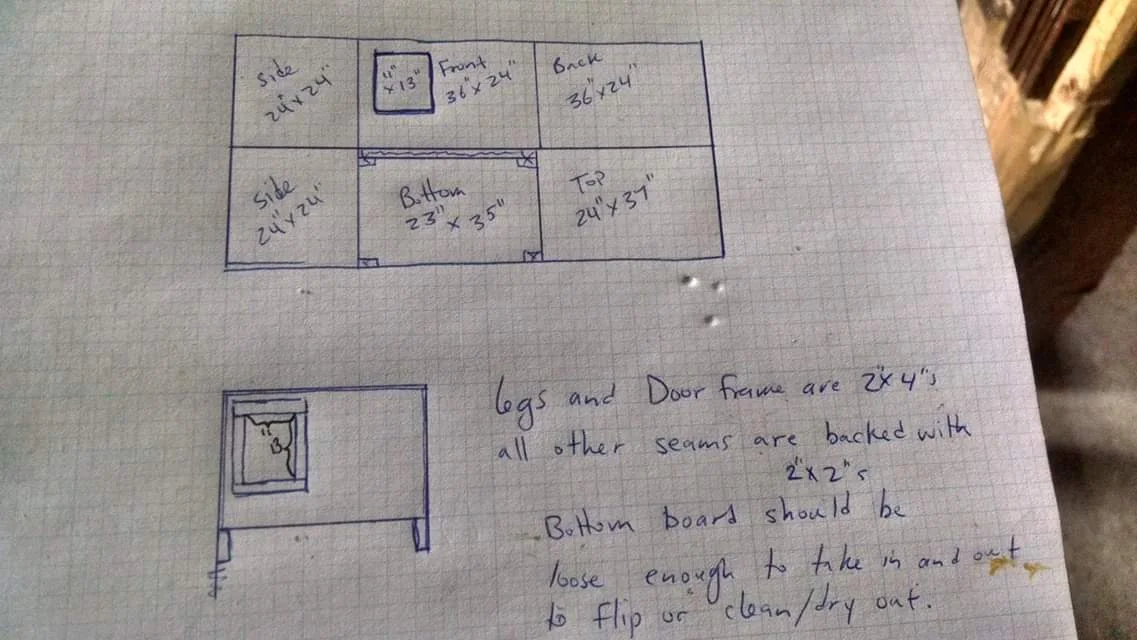 Side
24" x 24"
11"
x 13"
Front
36" x 24"
Back
36" x 24"
Side
24" x 24"
Bottom
23" x 35"
Top
24" x 37"
11"
13
Legs and Door frame are 2"x4"s
all other seams are backed with
2"x2"s
Bottom board should be
loose enough to take in and out
to flip or clean/dry out.